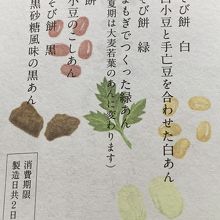 そび餅 白
白小豆と手亡豆を合わせた白あん
そび餅 緑
よもぎでつくった緑あん
(夏期は大麦若葉のあんに変わります)
餅
小豆のこしあん
そび餅 黒
黒砂糖風味の黒あん
消費期限
製造日共2日